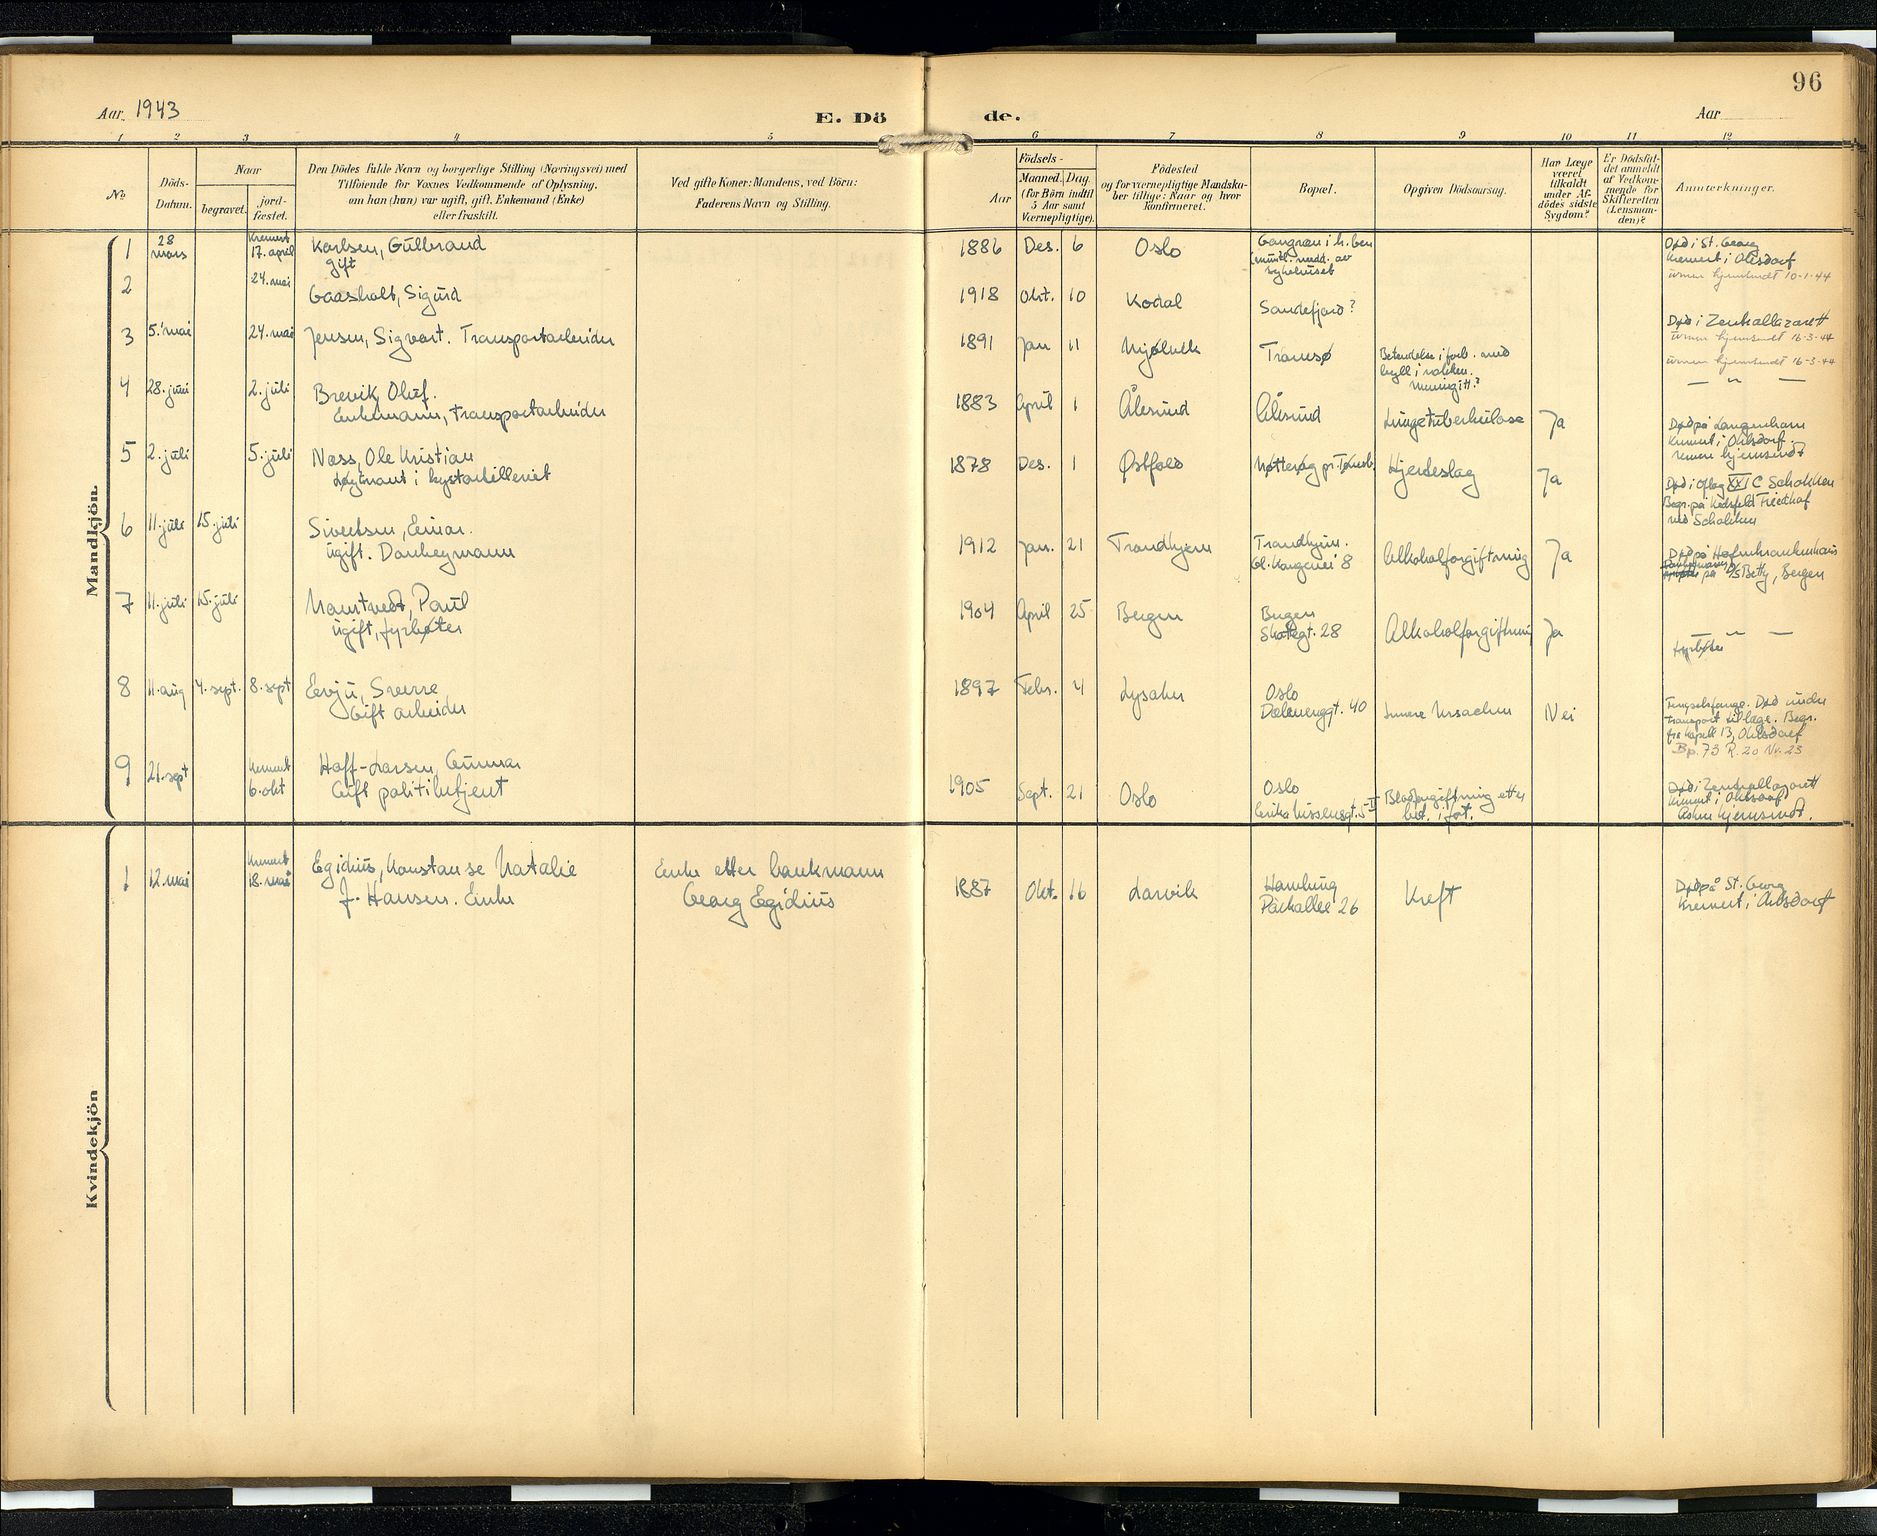 96
Aar 1943
E. Dö
de.
Aar
1 2 3 4 5 6 7 8 9 10 11 12
No
Döds-
Datum.
Naar
begravet.
jord-
fæstet.
Den Dödes fulde Navn og borgerlige Stilling (Næringsvei) med
Tilföiende for Voxnes Vedkommende af Oplysning,
om han (hun) var ugift, gift, Enkemand (Enke)
eller fraskilt.
Ved gifte Koner: Mandens, ved Börn:
Faderens Navn og Stilling.
Födsels-
Aar
Maaned. Dag.
(for Börn indtil
5 Aar samt
Værnepligtige).
Födested
og for værnepligtige Mandska-
ber tillige: Naar og hvor
konfirmeret.
Bopæl.
Opgiven Dödsaarsag.
Har Læge
været
tilkaldt
under Af-
dödes sidste
Sygdom?
Er Dödsfal-
det anmeldt
af Vedkom-
mende for
Skifteretten
(Lensman-
den)?
Anmærkninger.
Mandkjön
1
28
mars
Kremert
17. april
Karlsen, Gulbrand
gift
1886 Des. 6 Oslo
Gangræn i h. ben
muntl. medd. av
sykehuset
Død i St. Georg
Kremert i Ohlsdorf
urnen hjemsendt 10-1-44
2
24. mai
Gaasholt, Sigurd
1918 Okt. 10 Kodal Sandefjord?
Død i Zentrallazarett
urnen hjemsendt 16-3-44
3 5. mai 24. mai Jensen, Sigvart. Transportarbeider
1891 Jan 11 Mjølvik Tromsø
Betendelse i forb. med
byll i nakken.
Meningitt?
urnen hjemsendt 16-3-44
— " —
4 28. juni 2. juli Brevik, Oluf.
Enkemann, transportarbeider
1883 April 1 Ålesund Ålesund Lungetuberkulose Ja
Død på Langenhorn
Kremert i Ohlsdorf.
urnen hjemsendt
5 2. juli 5. juli Næss, Ole Kristian
Løytnant i kystartilleriet
1878 Des. 1 Østfold Nøtterøy pr. Tønsb. Hjerteslag Ja
Død i Oflag XXI C Schokken
Begr. på Friedhof
ved Schokken
6 11. juli 15. juli Sivertsen, Einar.
ugift. Donkeymann
1912 Jan. 21 Trondhjem
Trondhjem.
Gl. Kongevei 8
Alkoholforgiftning Ja
Død på Hafenkrankenhaus
Donkeymann
på D/S Betty, Bergen
7 11. juli 15. juli Namtvedt, Paul
ugift, fyrbøter
1904 April 25 Bergen
Bergen
Skotegt. 28
Alkoholforgiftning Ja
— " —
Fyrbøter
8 11. aug 4. sept. 8. sept Evju, Sverre
Gift arbeider
1897 Febr. 4 Lysaker
Oslo
Dælenenggt. 40
Innere Ursachen Nei
Fengselsfange. Død under
transport til lege. Begr.
fra kapell 13, Ohlsdorf
Bp. 73 R. 20 Nr. 23
9 21. sept
Kremert
6. okt
Hoff-Larsen, Gunnar
Gift politibetjent
1905 Sept. 21 Oslo
Oslo
Erika Nissensgt. 5 II
Blodforgiftning etter
bet. i fot.
Død i Zentrallazarett
Kremert i Ohlsdorf
Asken hjemsendt.
Kvindekjön
1 12. mai
Kremert
18. mai
Egidius, Konstanse Natalie
J. Hansen. Enke
Enke etter bankmann
Georg Egidius
1887 Okt. 16 Larvik
Hamburg
Parkallee 26
Kreft
Død på St. Georg
Kremert i Ohlsdorf